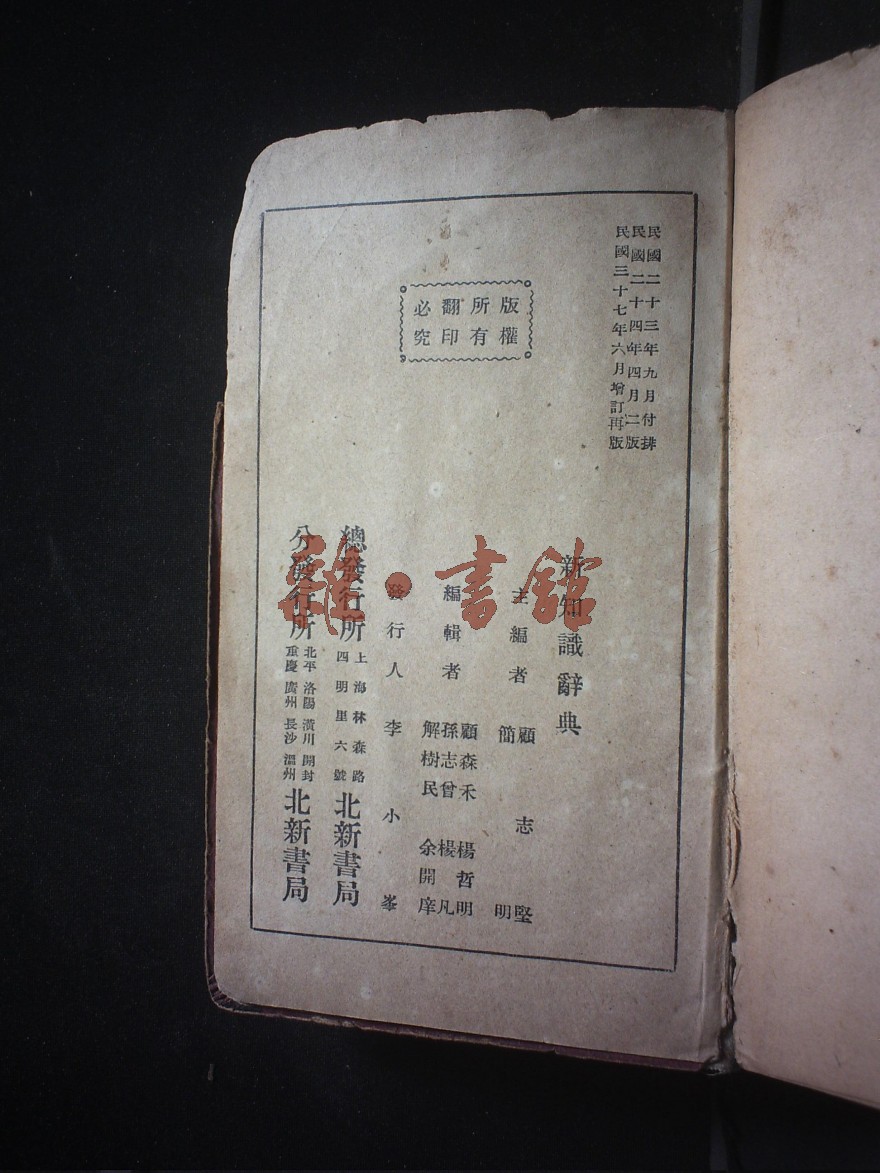 民國二十三年九月付排
民國二十四年四月二版
民國三十七年六月增訂再版
版權
所有
翻印
必究
新知識辭典
主編者
顧志堅
簡明
編輯者
顧森禾 楊哲明
孫志曾 楊凡
解樹民 余開庠
發行人 李小峯
總發行所
上海林森路
四明里六號
北新書局
分發行所
北平 洛陽 潢川 開封
重慶 廣州 長沙 溫州
北新書局
雜·書館